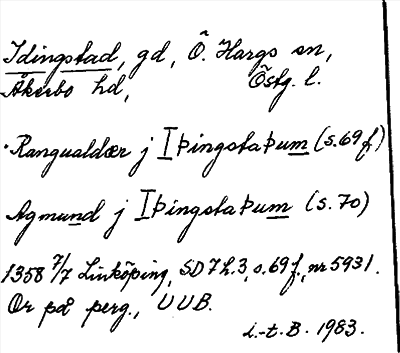 Idingstad, gd, Ö. Hargs sn,
Åkerbo hd, Östg. l.
Rangualdær j IÞingstaÞum (s. 69 f)
Agmund j IÞingstaÞum (s. 70)
1358 7/7 Linköping, SD 7 h. 3, s. 69 f., nr 5931.
Or på perg., UUB.
i.-t. B. 1983.